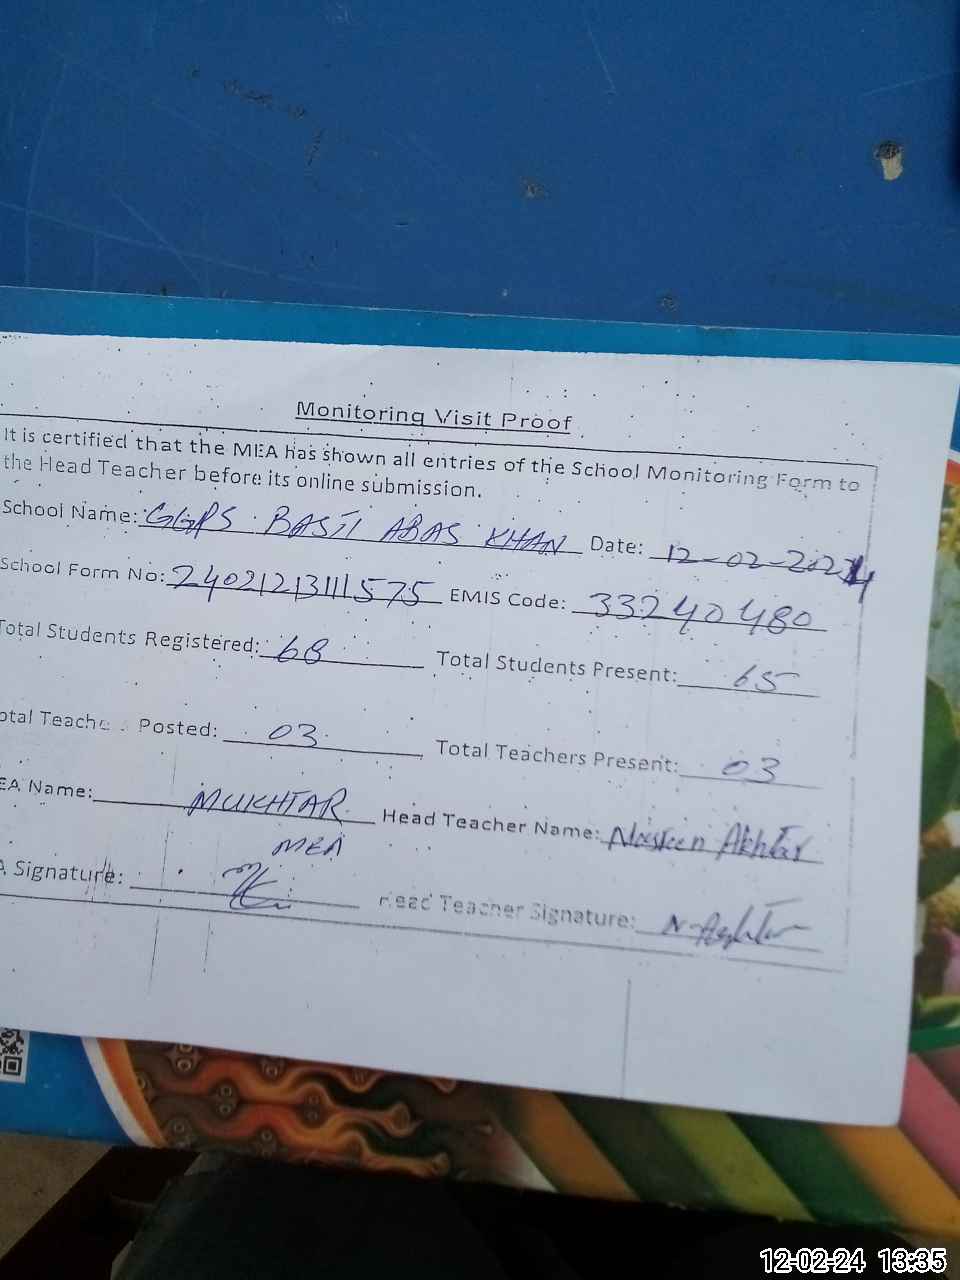 Monitoring Visit Proof
It is certified that the MEA has shown all entries of the School Monitoring Form to
the Head Teacher before its online submission.
School Name: GGPS BASTI ABAS KHAN Date: 12-02-2024
School Form No: 24021213111575 EMIS Code: 33240480
Total Students Registered: 68 Total Students Present: 65
otal Teache s Posted: 03 Total Teachers Present: 03
EA Name: MUKHTAR Head Teacher Name: Nasreen Akhtar
MEA
A Signature: Head Teacher Signature:
12-02-24 13:35